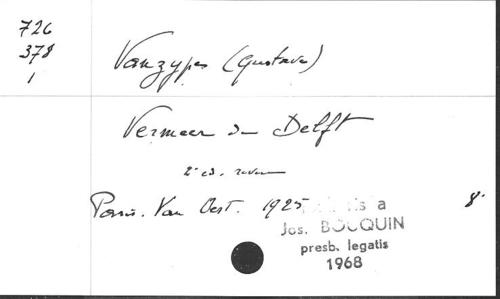 726
378
1
Vanzypes (Gustave)
Vermeer de Delft
2e éd. revue
Paris. Van Oest. 1925 8°
is a
Jos. BOCQUIN
presb. legatis
1968